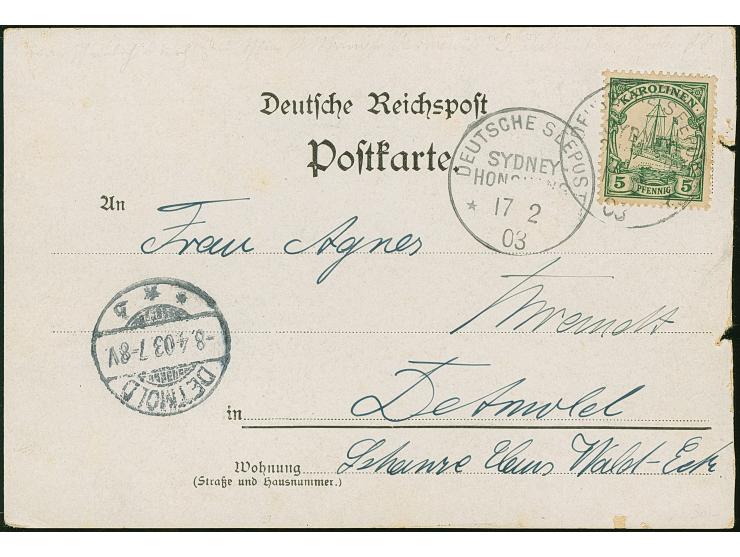 Deutsche Reichspost
Postkarte.
KAROLINEN
5 PFENNIG 5
DEUTSCHE SEEPOST
SYDNEY
HONGKONG
* 17 2
03
03
An
Frau Agnes
DETMOLD
-8.4.03.7-8V.
* * b
in Detmold
Wohnung
(Straße und Hausnummer.)
Haus Wald-Eck